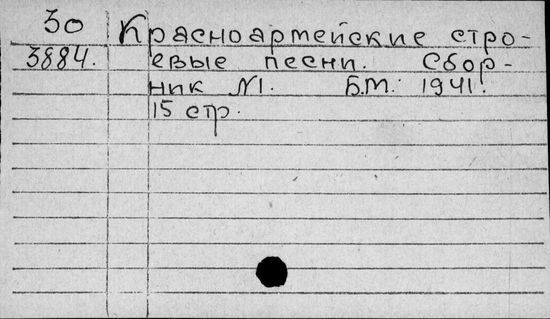 30 Красноармейские стро-
3884. евые песни. Сбор-
ник №1. Б.М. 1941.
15 стр.